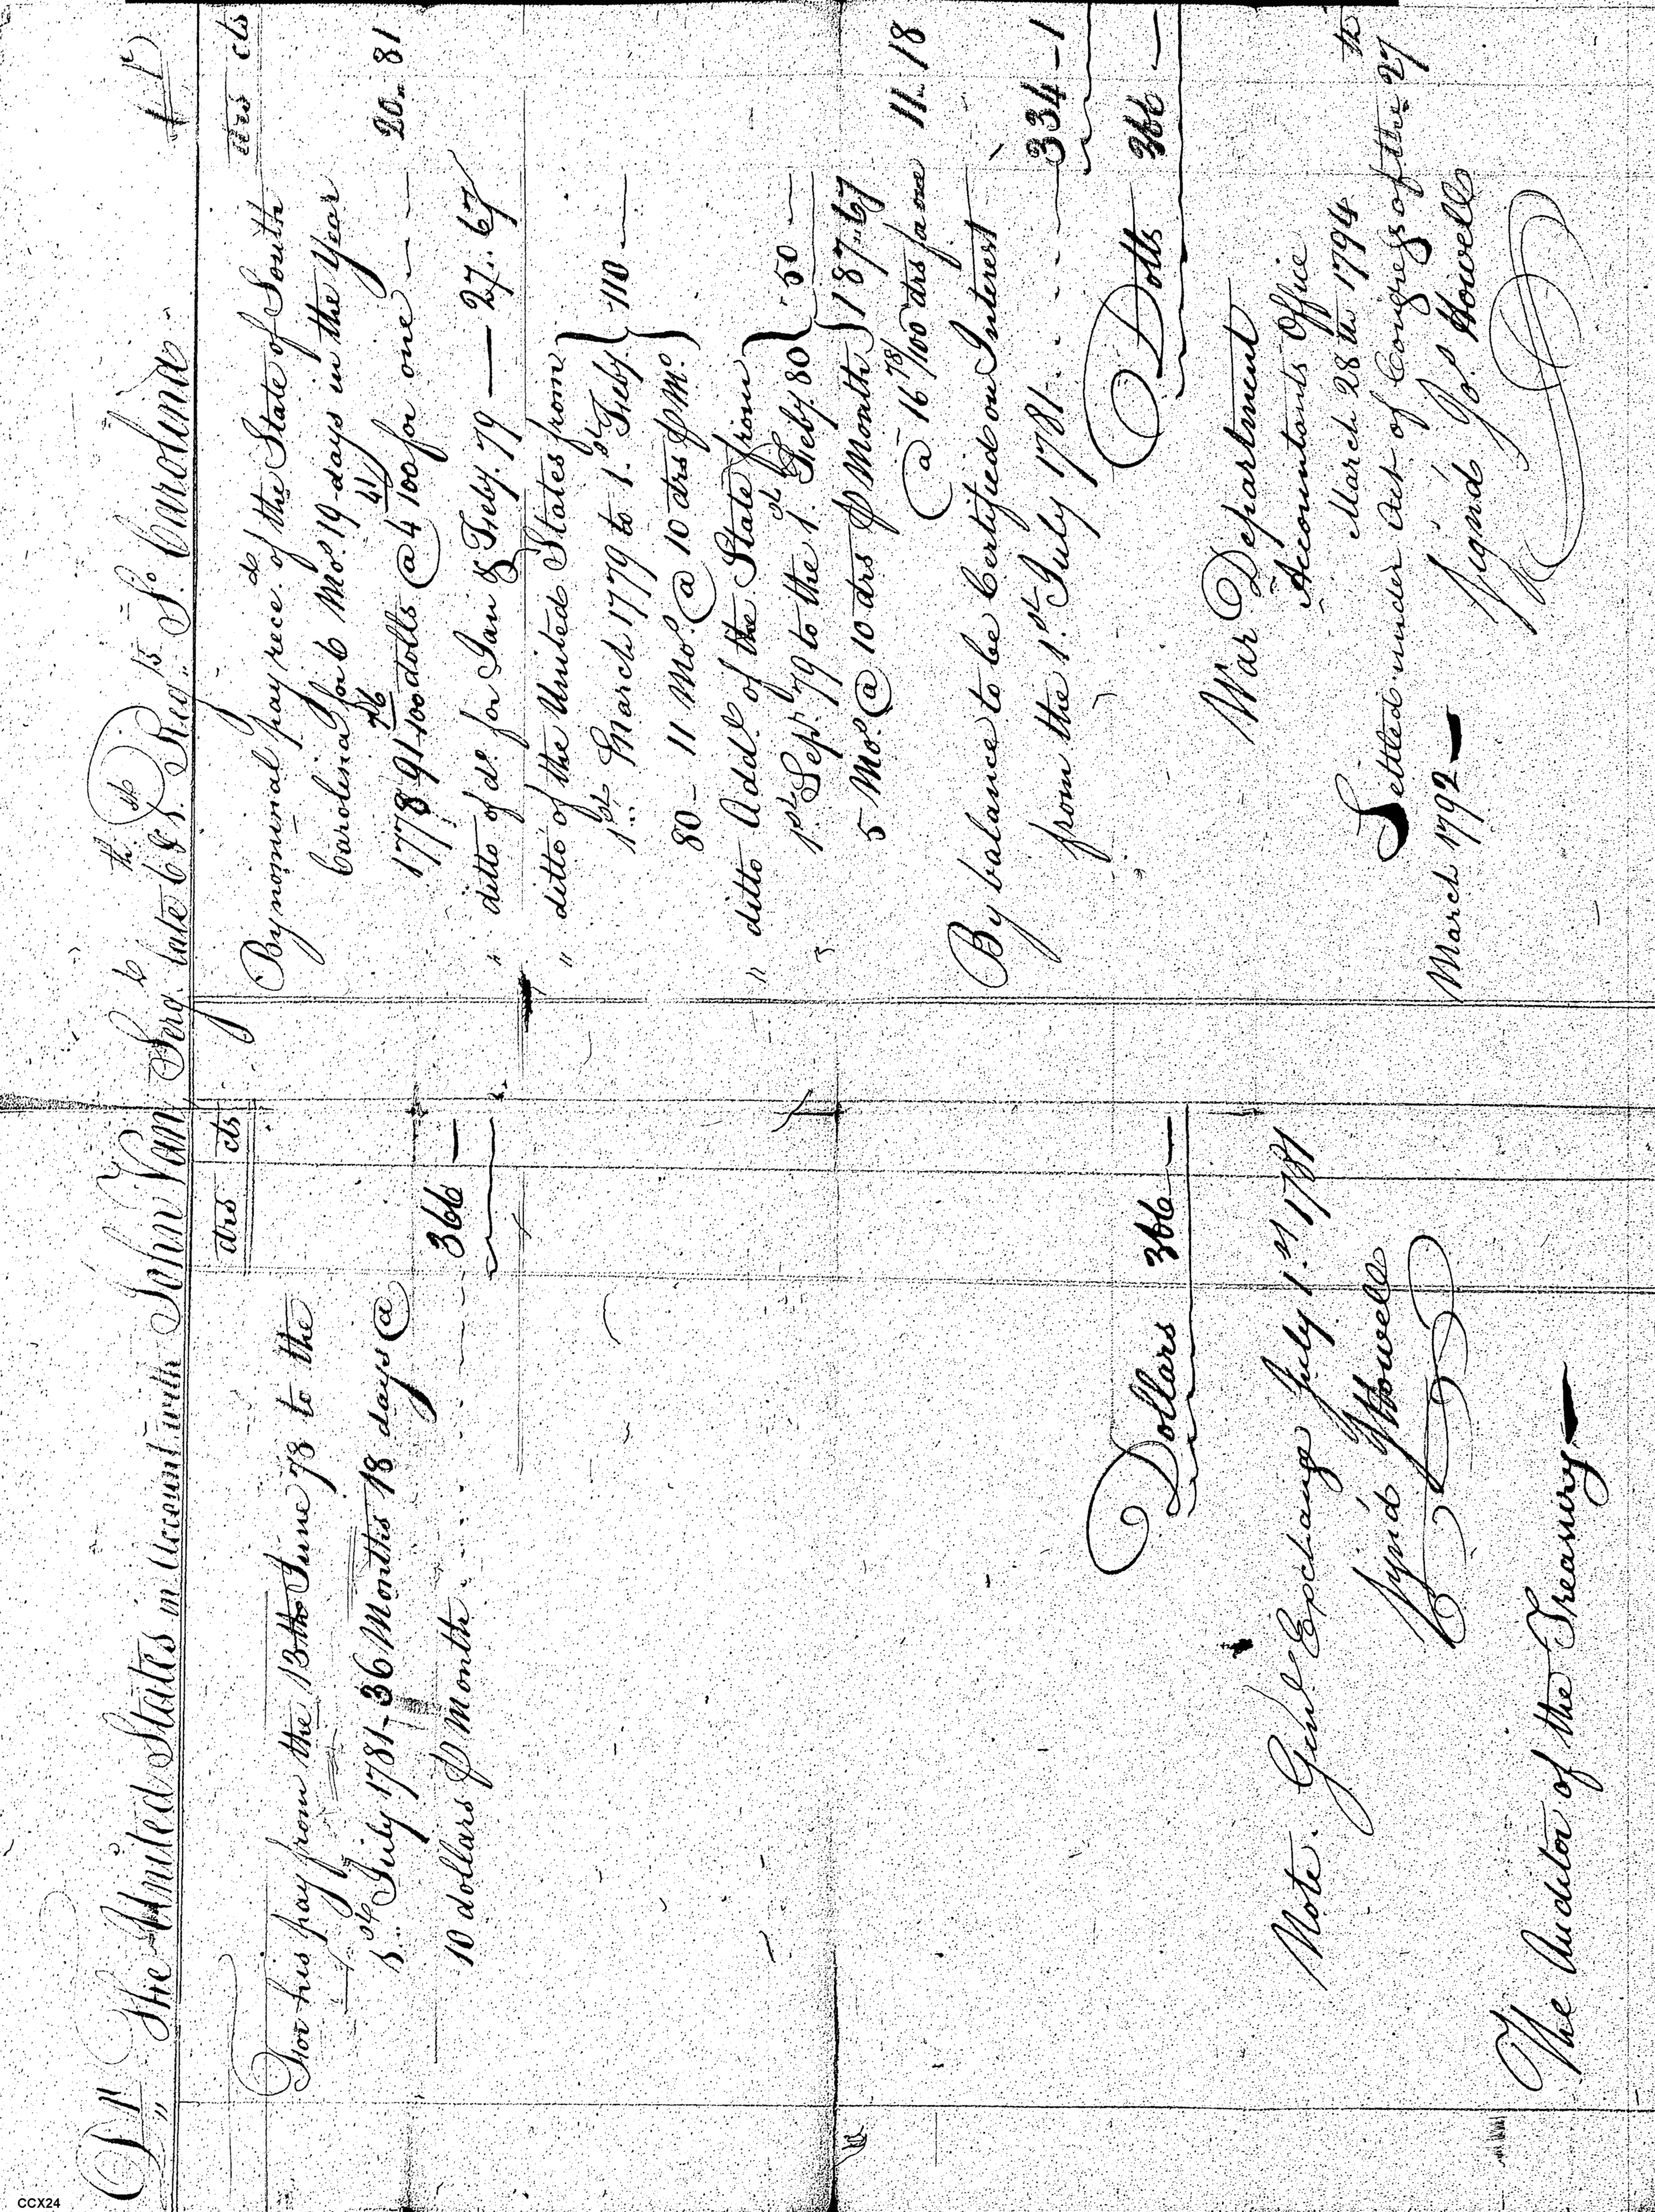 Dr The United States in account with John Van Sergt. late 6th & 1st Regt. So. Carolina. Cr
drs cts
For his pay from the 13th June 78 to the
1st July 1781 - 36 Months 18 days @
10 dollars ⅌ Month 366 —
Dollars 366 —
Note. Genl. Exchange July 1st 1781
Sign'd J Howell
The Auditor of the Treasury —
drs cts
By nominal pay recd. of the State of South
Carolina for 6 Mos. 19 days in the Year
1778 91 76/100 dolls @ 4 41/100 for one — 20.. 81
" ditto of do. for Jan & Feby. 79 — 27.. 67
" ditto of the United States from
1st March 1779 to 1st Feby. } 110 —
80 - 11 Mos. @ 10 drs ⅌ Mo.
" ditto Addl. of the State from
1st Sepr. 79 to the 1st Feby. 80 } 50 —
5 Mos. @ 10 drs ⅌ Month } 187.. 67
@ 16 78/100 drs for one 11.. 18
By balance to be Certified on Interest
from the 1st July 1781 334 - 1
Dolls 366 —
War Department
Accountants Office
March 28th 1794
Settled under Act of Congress of the 27th
March 1792 —
Signd Jos. Howell
CCX24